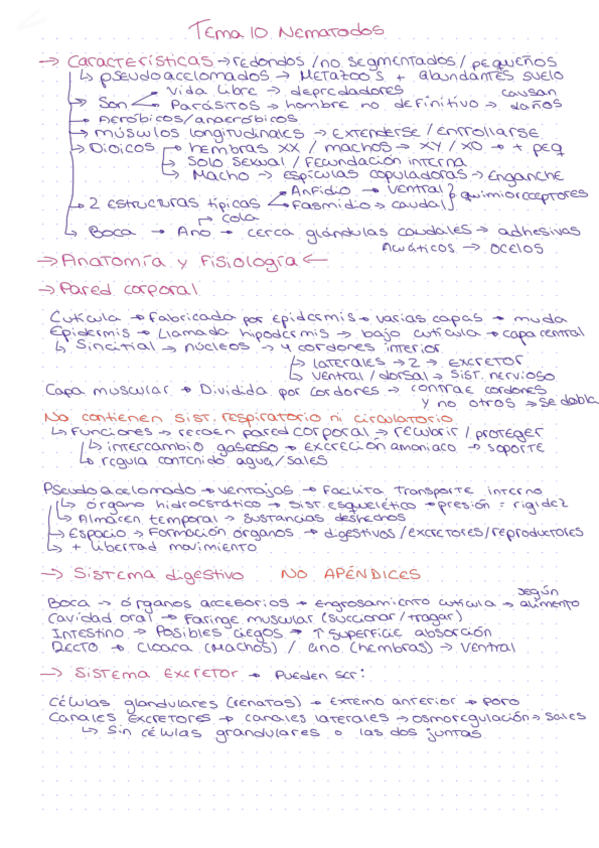 Tema 10 Nematodos
→ Características → redondos / no segmentados / pequeños
↳ pseudoacelomados → Metazoo's + abundantes suelo
→ Son < vida libre → depredadores
Parásitos → hombre no definitivo → causan daños
→ Aeróbicos/anaeróbicos
→ músculos longitudinales → extenderse / enrollarse
→ Dioicos → hembras XX / machos → XY / XO → + peq
↳ Solo sexual / Fecundación interna
↳ Macho → espículas copuladoras → Enganche
→ 2 estructuras típicas < Anfidio → ventral } quimiorreceptores
Fasmidio → caudal
→ cola
↳ Boca → Ano → cerca glándulas caudales → adhesivas
Acuáticos → ocelos
→ Anatomía y Fisiología ←
→ Pared corporal
Cutícula → Fabricada por epidermis → varias capas → muda
Epidermis → Llamada hipodermis → bajo cutícula → capa central
↳ Sincitial → núcleos → 4 cordones interior
↳ laterales → 2 → excretor
↳ ventral / dorsal → sist. nervioso
Capa muscular → Dividida por cordones → contrae cordones
y no otros → se dobla
No contienen sist. respiratorio ni circulatorio
↳ Funciones → recaen pared corporal → recubrir / proteger
↳ intercambio gaseoso → excreción amoniaco → soporte
↳ regula contenido agua/sales
Pseudoacelomado → ventajas → Facilita transporte interno
↳ órgano hidrostático → sist. esquelético → presión = rigidez
↳ Almacen temporal → sustancias deshechos
→ Espacio → Formación órganos → digestivos / excretores / reproductores
↳ + libertad movimiento
→ Sistema digestivo NO APÉNDICES
Boca → órganos accesorios → engrosamiento cutícula → según alimento
Cavidad oral → Faringe muscular (succionar / tragar)
Intestino → Posibles ciegos → ↑ superficie absorción
Recto → Cloaca (machos) / ano (hembras) → ventral
→ Sistema excretor → Pueden ser:
Células glandulares (renatas) → extremo anterior → poro
Canales excretores → canales laterales → osmoregulación → sales
↳ Sin células grandulares o las dos juntas